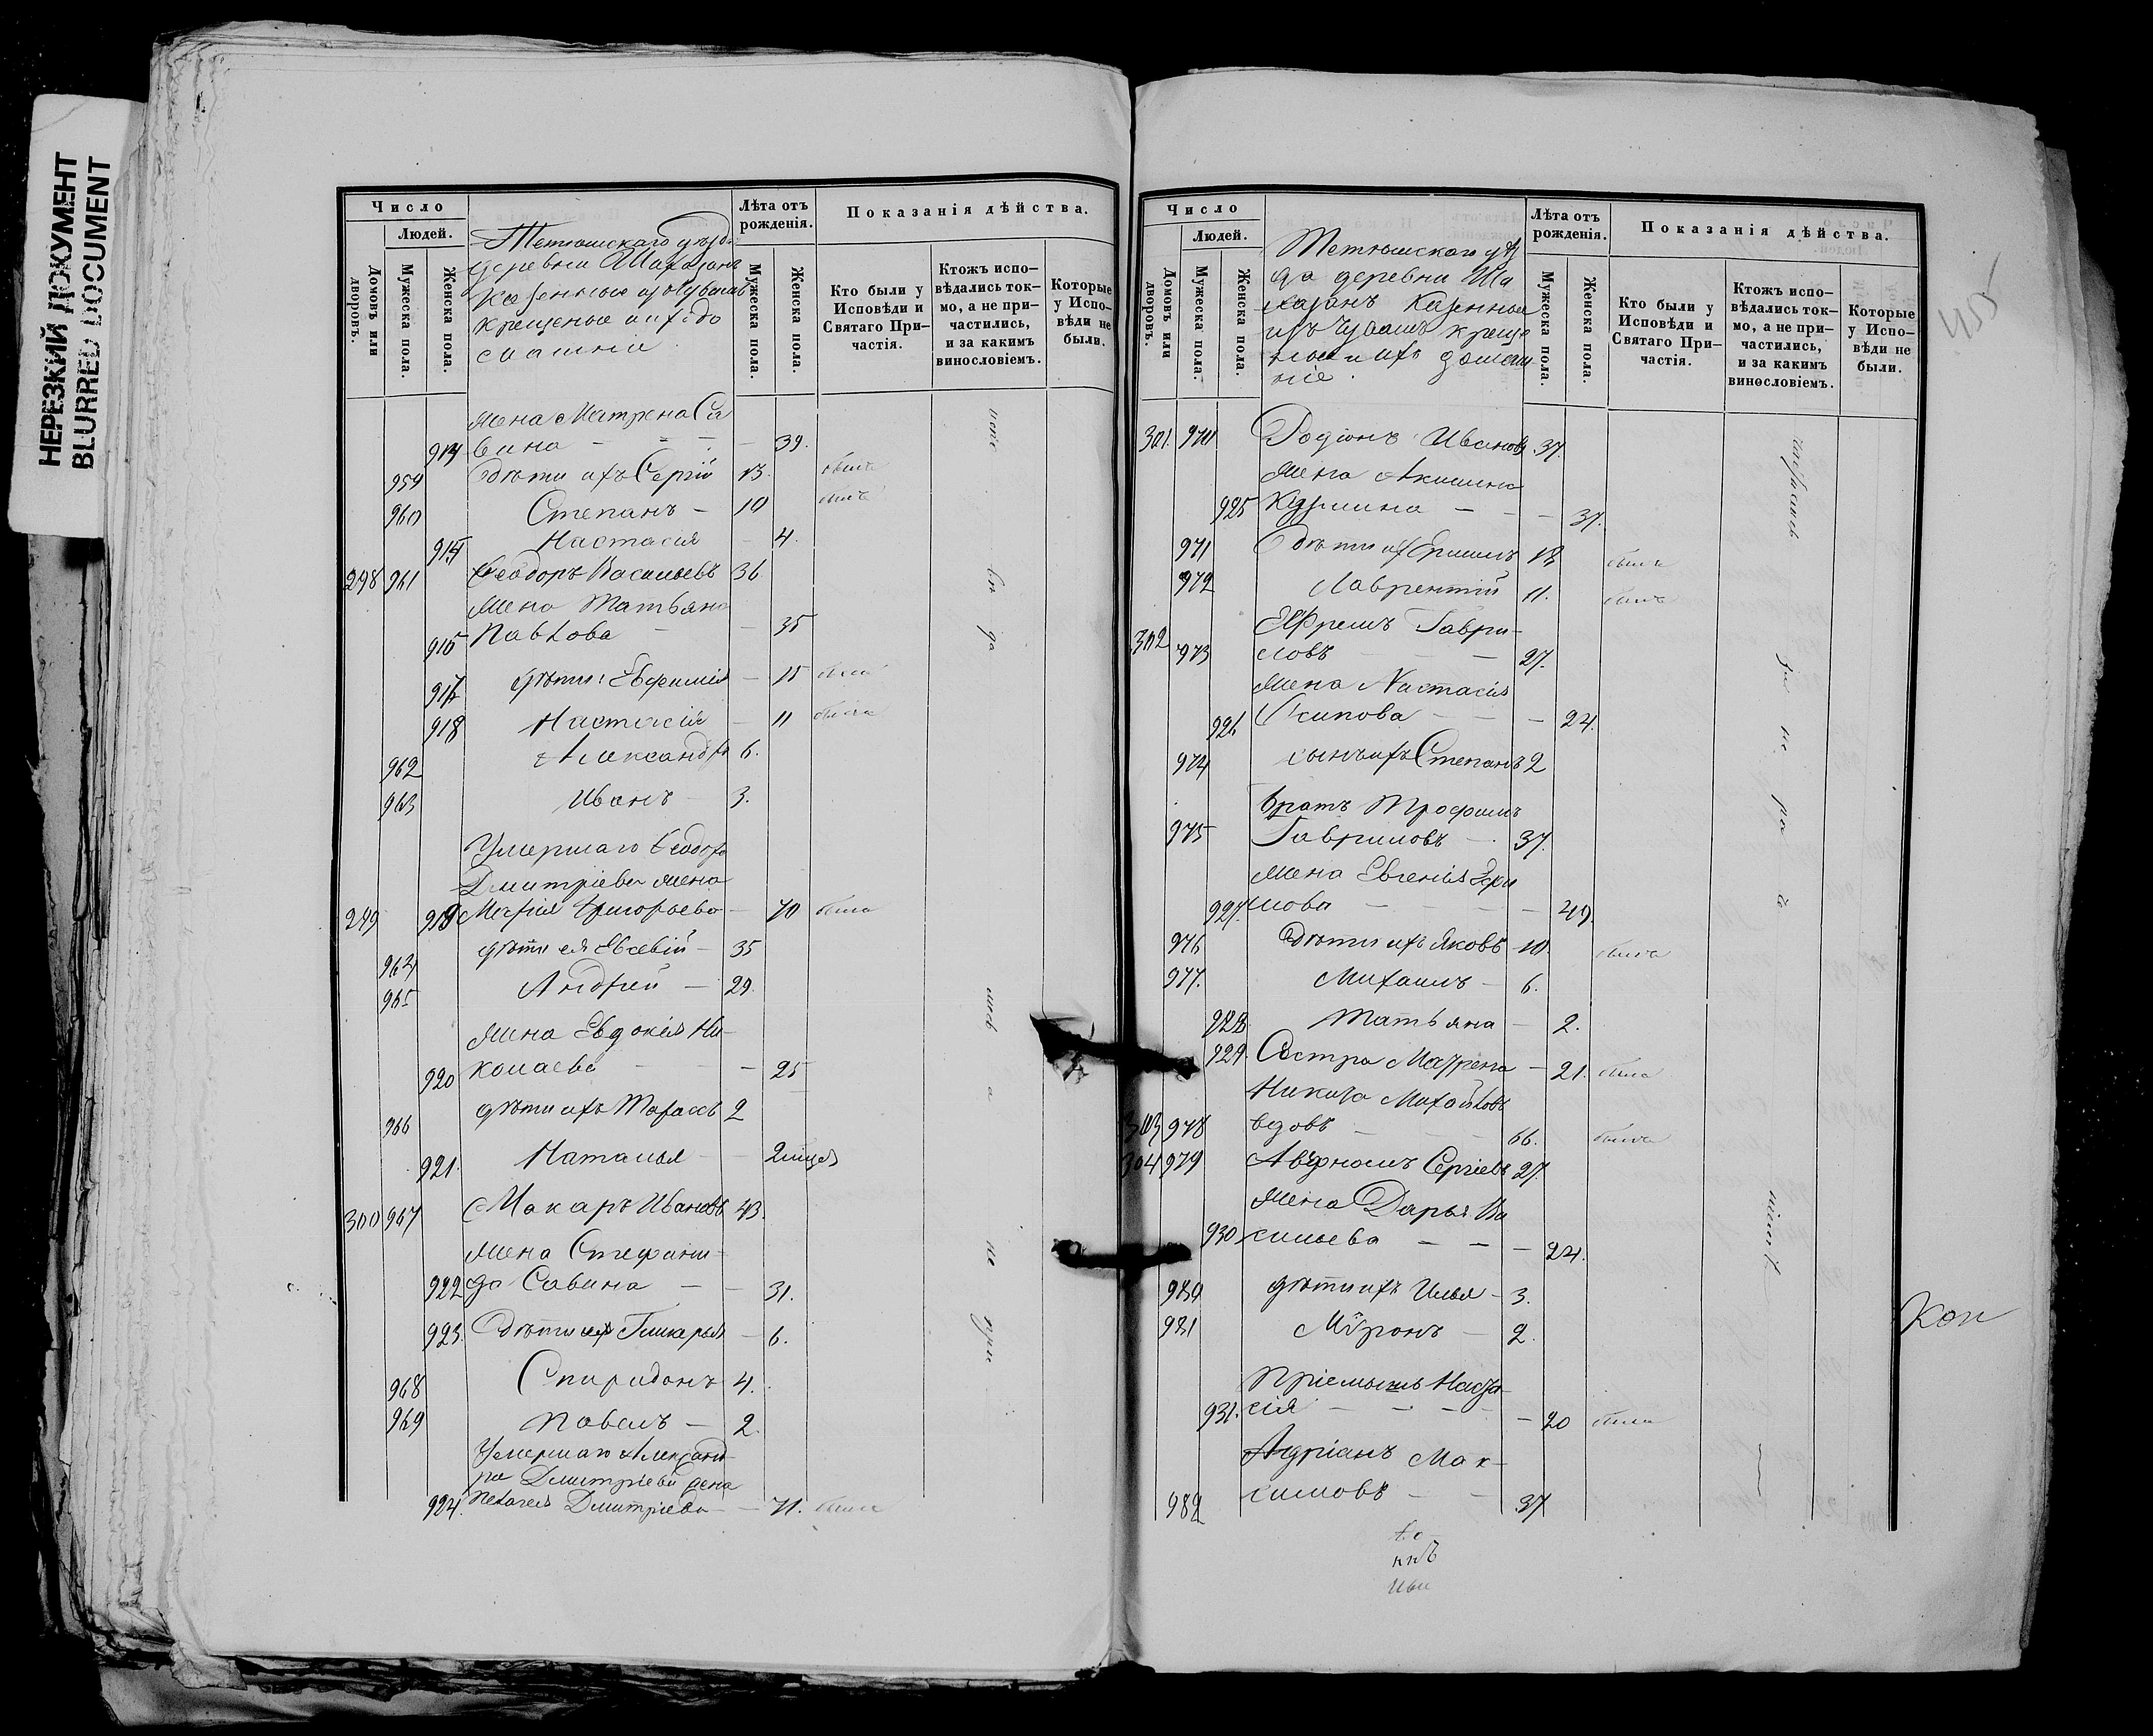 НЕРЕЗКИЙ ДОКУМЕНТ
BLURRED DOCUMENT
Число
Людей.
Домовъ или дворовъ.
Мужеска пола.
Женска пола.
Тетюшскаго уѣзда
деревни Шахазанъ
Казенные изъ Чувашъ
крещеные и ихъ до
машни
Лѣта отъ рожденія.
Мужеска пола.
Женска пола.
Показанія дѣйства.
Кто были у Исповѣди и Святаго При–частія.
Ктожъ испо–вѣдались ток–мо, а не при–частились, и за какимъ винословіемъ.
Которые у Испо–вѣди не были.
жена Матрена Са
вина – – – 39.
959 Дѣти ихъ Сергій 13. былъ
960 Степанъ – 10 былъ
Настасія – 4.
298 961 Ѳеодоръ Васильевъ 36
жена Татьяна
Павлова – – 35
917 дѣти: Евфимія – 15 была
918 Настасія – 11 была
962 Александръ 6.
963 Иванъ 3.
Умершаго Ѳеодора
Дмитріева жена
919 Марѳія Григорьева – 70 была
964 дѣти ея Евсевій – 35
965 Андрей – 29.
жена Евдокія Ни–
920 колаева – 25
966 дѣти ихъ Тарасъ 2
921. Наталья – 2 мцсд
300 967 Макаръ Ивановъ 43.
жена Стефани–
922 да Савина – – 31.
923. Дѣти ихъ Гликерья – 6.
968 Спиридонъ 4.
969 Павелъ – 2.
Умершаго Александ–
ра Дмитріева жена
924. Пелагея Дмитріева – – 71. была
не при
Число
Людей.
Домовъ или дворовъ.
Мужеска пола.
Женска пола.
Тетюшскаго уѣз
да деревни Ша
хазанъ Казенные
изъ Чувашъ креще
ные и ихъ домаш
ніе.
Лѣта отъ рожденія.
Мужеска пола.
Женска пола.
Показанія дѣйства.
Кто были у Исповѣди и Святаго При–частія.
Ктожъ испо–вѣдались ток–мо, а не при–частились, и за какимъ винословіемъ.
Которые у Испо–вѣди не были.
301. 970 Родіонъ Ивановъ 37.
жена Акилина
925 Кузмина – – – 37.
971 Дѣти ихъ былъ
972 Лаврентій 11. былъ
302 Ефремъ Гаври–
973 ловъ – 27.
жена Настасія
926 Осипова – – – 24.
974 сынъ ихъ Степанъ 2
братъ Трофимъ
975 Гавриловъ – 37.
жена Евгенія
927. мова – – – 49.
976 Дѣти ихъ Яковъ – 10. былъ
977. Михаилъ – 6.
928 Татьяна – 2.
929. Сестра Матрена – 21. была
Никита Михайловъ
303 978 вдовъ – 66. былъ
304 979 Сергіевъ 27.
жена Дарья Ва
930 сильева – – – 24.
980 дѣти ихъ Илья – 3.
981 Миронъ – 2.
Пріемышъ Наста
931. сія – – – 20 была
Адріанъ Мак–
982 симовъ – 37
Кон